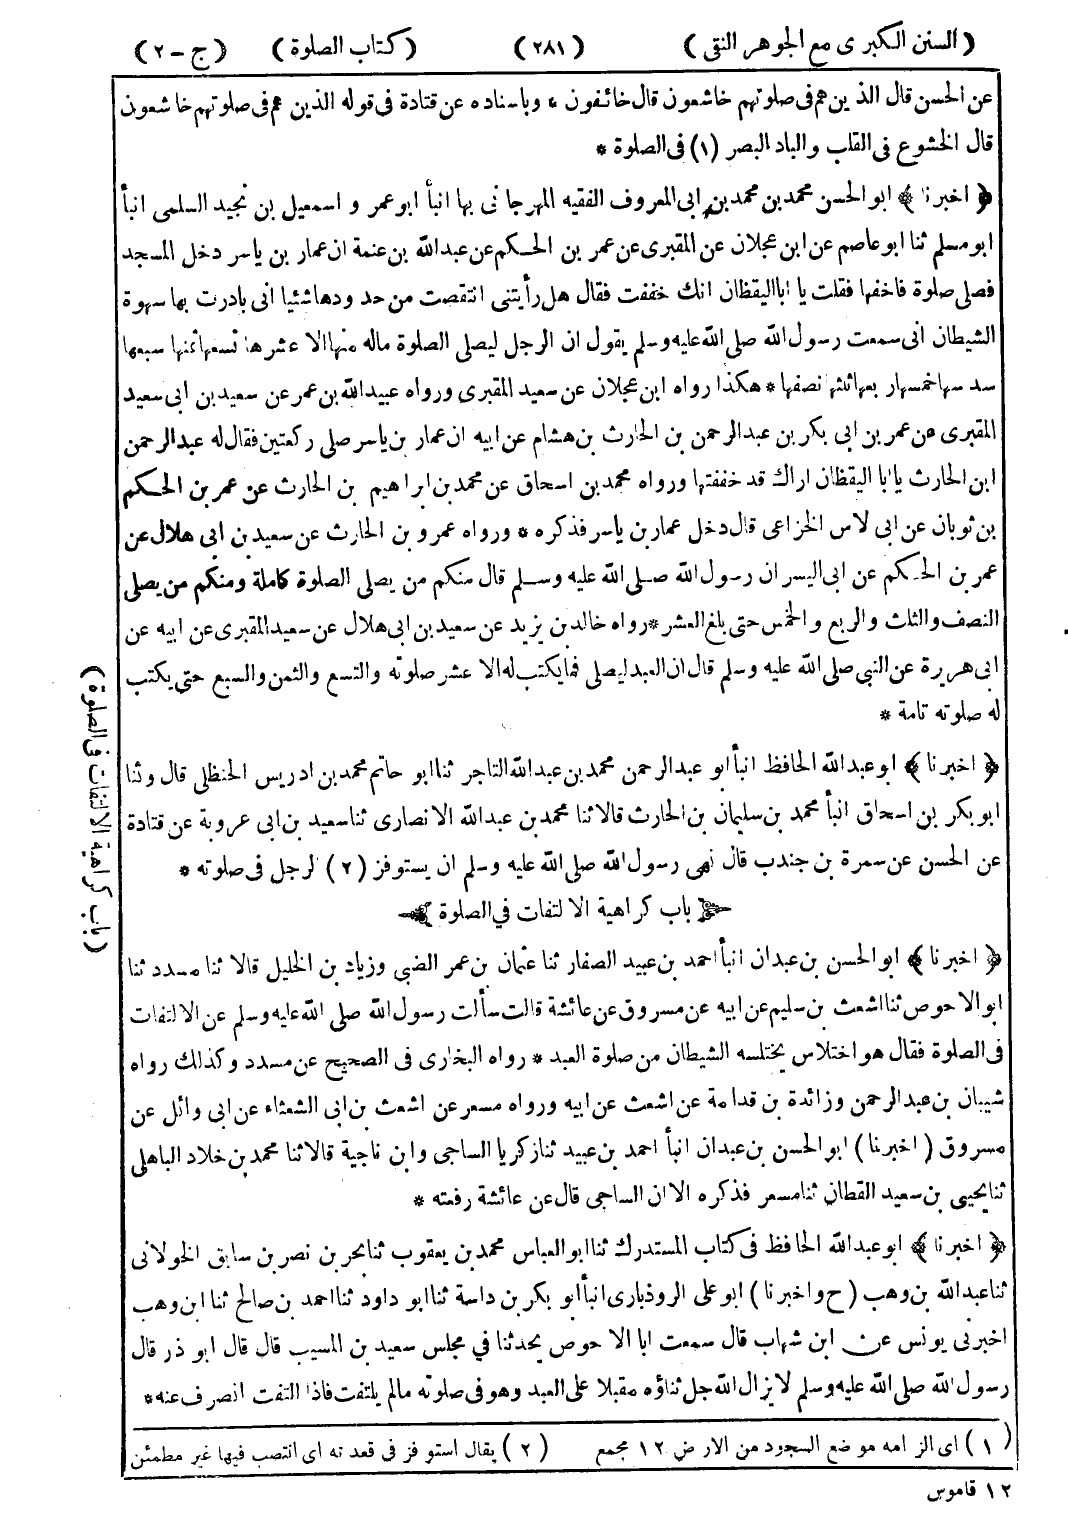 (السنن الكبرى مع الجوهر النقى) (٢٨١) (كتاب الصلوة) (ج - ٢)
عن الحسن قال الذين هم فى صلوتهم خاشعون قال خائفون * وباسناده عن قتادة فى قوله الذين هم فى صلوتهم خاشعون
قال الخشوع فى القلب والباد البصر (١) فى الصلوة *
﴿ اخبرنا ﴾ ابو الحسن محمد بن محمد بن ابى المعروف الفقيه المهرجانى بها انبأ ابو عمر و اسمعيل بن نجيد السلمى انبأ
ابو مسلم ثنا ابو عاصم عن ابن عجلان عن المقبرى عن عمر بن الحكم عن عبدالله بن عنمة ان عمار بن ياسر دخل المسجد
فصلى صلوة فاخفها فقلت يا ابا اليقظان انك خففت فقال هل رأيتنى انتقصت من حدودها شئيا انى بادرت بها سهوة
الشيطان انى سمعت رسول الله صلى الله عليه وسلم يقول ان الرجل ليصلى الصلوة ماله منها الا عشرها تسعها ثمنها سبعها
سدسها خمسها ربعها ثلثها نصفها * هكذا رواه ابن عجلان عن سعيد المقبرى ورواه عبيد الله بن عمر عن سعيد بن ابى سعيد
المقبرى عن عمر بن ابى بكر بن عبدالرحمن بن الحارث بن هشام عن ابيه ان عمار بن ياسر صلى ركعتين فقال له عبدالرحمن
ابن الحارث يا ابا اليقظان اراك قد خففتها ورواه محمد بن اسحاق عن محمد بن ابراهيم بن الحارث عن عمر بن الحكم
بن ثوبان عن ابى لاس الخزاعى قال دخل عمار بن ياسر فذكره * ورواه عمرو بن الحارث عن سعيد بن ابى هلال عن
عمر بن الحكم عن ابى اليسر ان رسول الله صلى الله عليه وسلم قال منكم من يصلى الصلوة كاملة ومنكم من يصلى
النصف والثلث والربع والخمس حتى بلغ العشر * رواه خالد بن يزيد عن سعيد بن ابى هلال عن سعيد المقبرى عن ابيه عن
ابى هريرة عن النبى صلى الله عليه وسلم قال ان العبد ليصلى فما يكتب له الا عشر صلوته والتسع والثمن والسبع حتى يكتب
له صلوته تامة *
﴿ اخبرنا ﴾ ابو عبدالله الحافظ انبأ ابو عبدالرحمن محمد بن عبدالله التاجر ثنا ابو حاتم محمد بن ادريس الحنظلى قال وثنا
ابو بكر بن اسحاق انبأ محمد بن سليمان بن الحارث قالا ثنا محمد بن عبدالله الانصارى ثنا سعيد بن ابى عروبة عن قتادة
عن الحسن عن سمرة بن جندب قال نهى رسول الله صلى الله عليه وسلم ان يستوفز (٢) الرجل فى صلوته *
باب كراهية الالتفات في الصلوة
(باب كراهية الالتفات فى الصلوة)
﴿ اخبرنا ﴾ ابو الحسن بن عبدان انبأ احمد بن عبيد الصفار ثنا عثمان بن عمر الضبى وزياد بن الخليل قالا ثنا مسدد ثنا
ابو الاحوص ثنا اشعث بن سليم عن ابيه عن مسروق عن عائشة قالت سألت رسول الله صلى الله عليه وسلم عن الالتفات
فى الصلوة فقال هو اختلاس يختلسه الشيطان من صلوة العبد * رواه البخارى فى الصحيح عن مسدد وكذلك رواه
شيبان بن عبدالرحمن وزائدة بن قدامة عن اشعث عن ابيه ورواه مسعر عن اشعث بن ابى الشعثاء عن ابى وائل عن
مسروق (اخبرنا) ابو الحسن بن عبدان انبأ احمد بن عبيد ثنا زكريا الساجى وابن ناجية قالا ثنا محمد بن خلاد الباهلى
ثنا يحيى بن سعيد القطان ثنا مسعر فذكره الا ان الساجى قال عن عائشة رفعته *
﴿ اخبرنا ﴾ ابو عبدالله الحافظ فى كتاب المستدرك ثنا ابو العباس محمد بن يعقوب ثنا بحر بن نصر بن سابق الخولانى
ثنا عبدالله بن وهب (ح واخبرنا) ابو على الروذبارى انبأ ابو بكر بن داسة ثنا ابو داود ثنا احمد بن صالح ثنا ابن وهب
اخبرنى يونس عن ابن شهاب قال سمعت ابا الاحوص يحدثنا في مجلس سعيد بن المسيب قال قال ابو ذر قال
رسول الله صلى الله عليه وسلم لا يزال الله جل ثناؤه مقبلا على العبد وهو فى صلوته مالم يلتفت فاذا التفت انصرف عنه *
(١) اى الزامه موضع السجود من الارض ١٢ مجمع (٢) يقال استوفز فى قعدته اى انتصب فيها غير مطمئن
١٢ قاموس